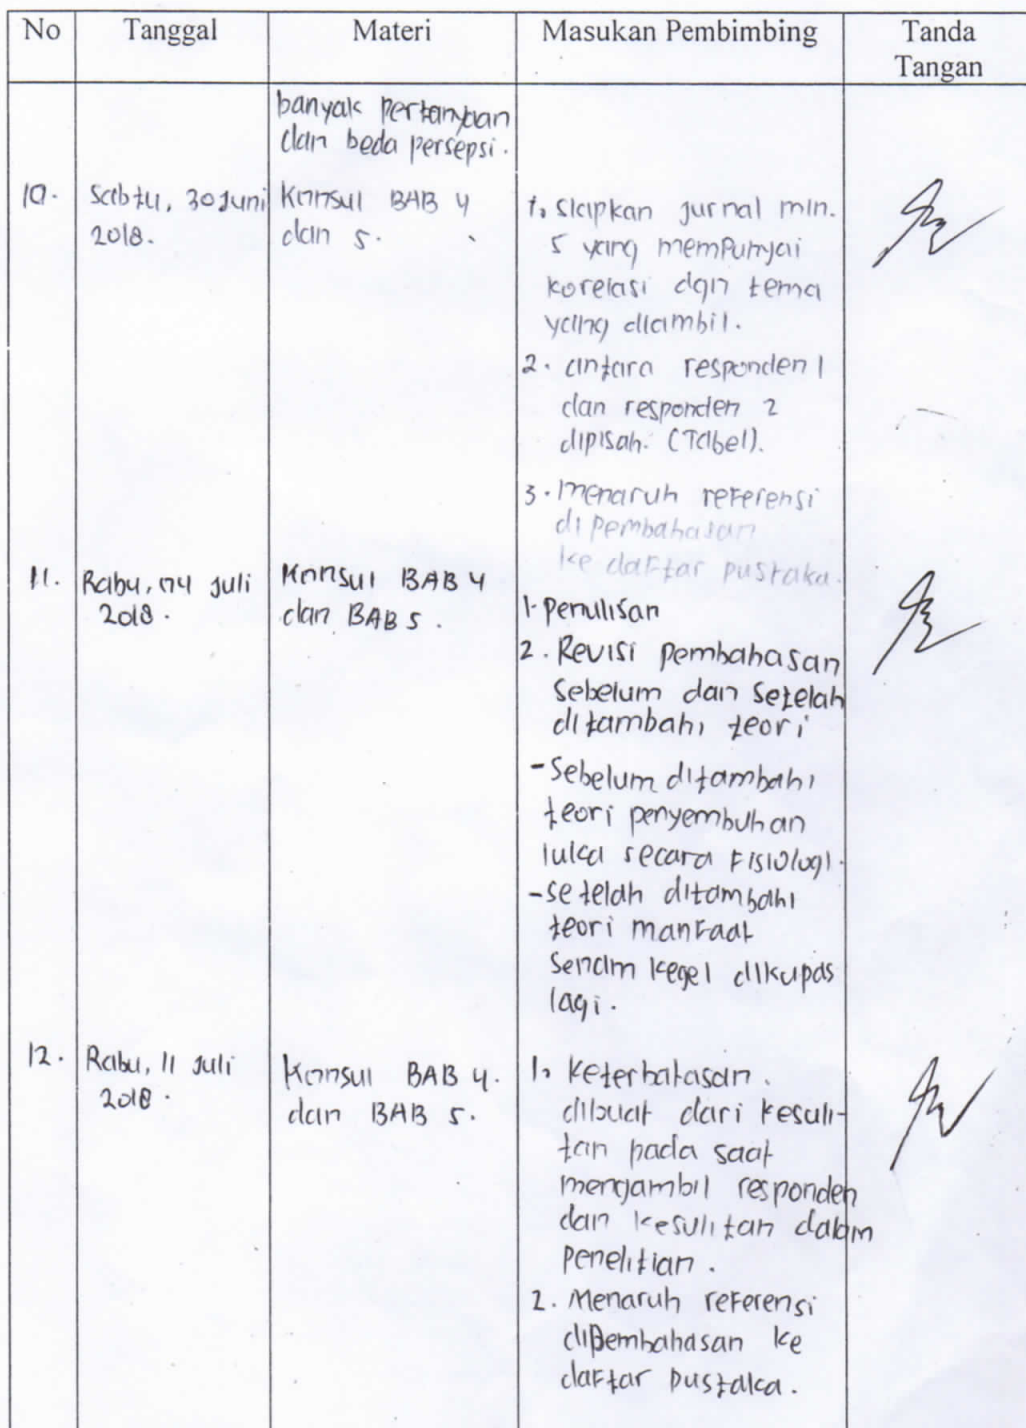 No Tanggal Materi Masukan Pembimbing Tanda Tangan
banyak pertanyaan
dan beda persepsi.
10. Sabtu, 30 Juni
2018.
Konsul BAB 4
dan 5.
1. Siapkan jurnal min.
5 yang mempunyai
korelasi dgn tema
yang diambil.
2. antara responden 1
dan responden 2
dipisah. (Tabel).
3. Menaruh referensi
di pembahasan
ke daftar pustaka.
11. Rabu, 04 Juli
2018.
Konsul BAB 4
dan BAB 5.
1. penulisan
2. Revisi pembahasan
sebelum dan setelah
ditambahi teori
- Sebelum ditambahi
teori penyembuhan
luka secara fisiologi.
- setelah ditambahi
teori manfaat
senam kegel dikupas
lagi.
12. Rabu, 11 Juli
2018.
Konsul BAB 4.
dan BAB 5.
1. Keterbatasan.
dibuat dari kesuli-
tan pada saat
mengambil responden
dan kesulitan dalam
penelitian.
2. Menaruh referensi
dipembahasan ke
daftar pustaka.